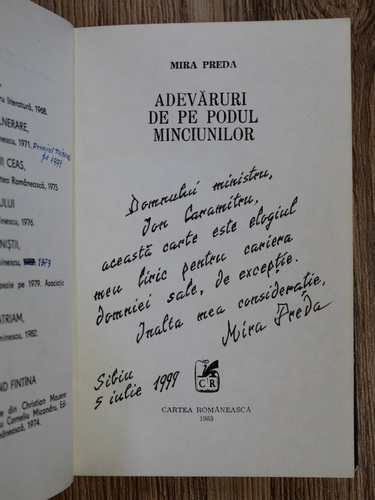 ru literatură, 1968.
LNERARE,
inescu, 1971.
Premiul
pe 1971
II CEAS,
rtea Românească, 1975
ULUI
minescu, 1976.
NIȘTII,
minescu, 1979
oezie pe 1979. Asociația
ATRIAM,
minescu, 1982.
ND FINTINA
re din Christian Maurer
u Corneliu Micandru, Ed-
omânească, 1974.
MIRA PREDA
ADEVĂRURI
DE PE PODUL
MINCIUNILOR
Domnului ministru,
Ion Caramitru,
această carte este elogiul
meu liric pentru cariera
domniei sale, de excepție.
Înalta mea considerație,
Mira Preda
Sibiu
5 iulie 1999
CR
CARTEA ROMÂNEASCĂ
1985